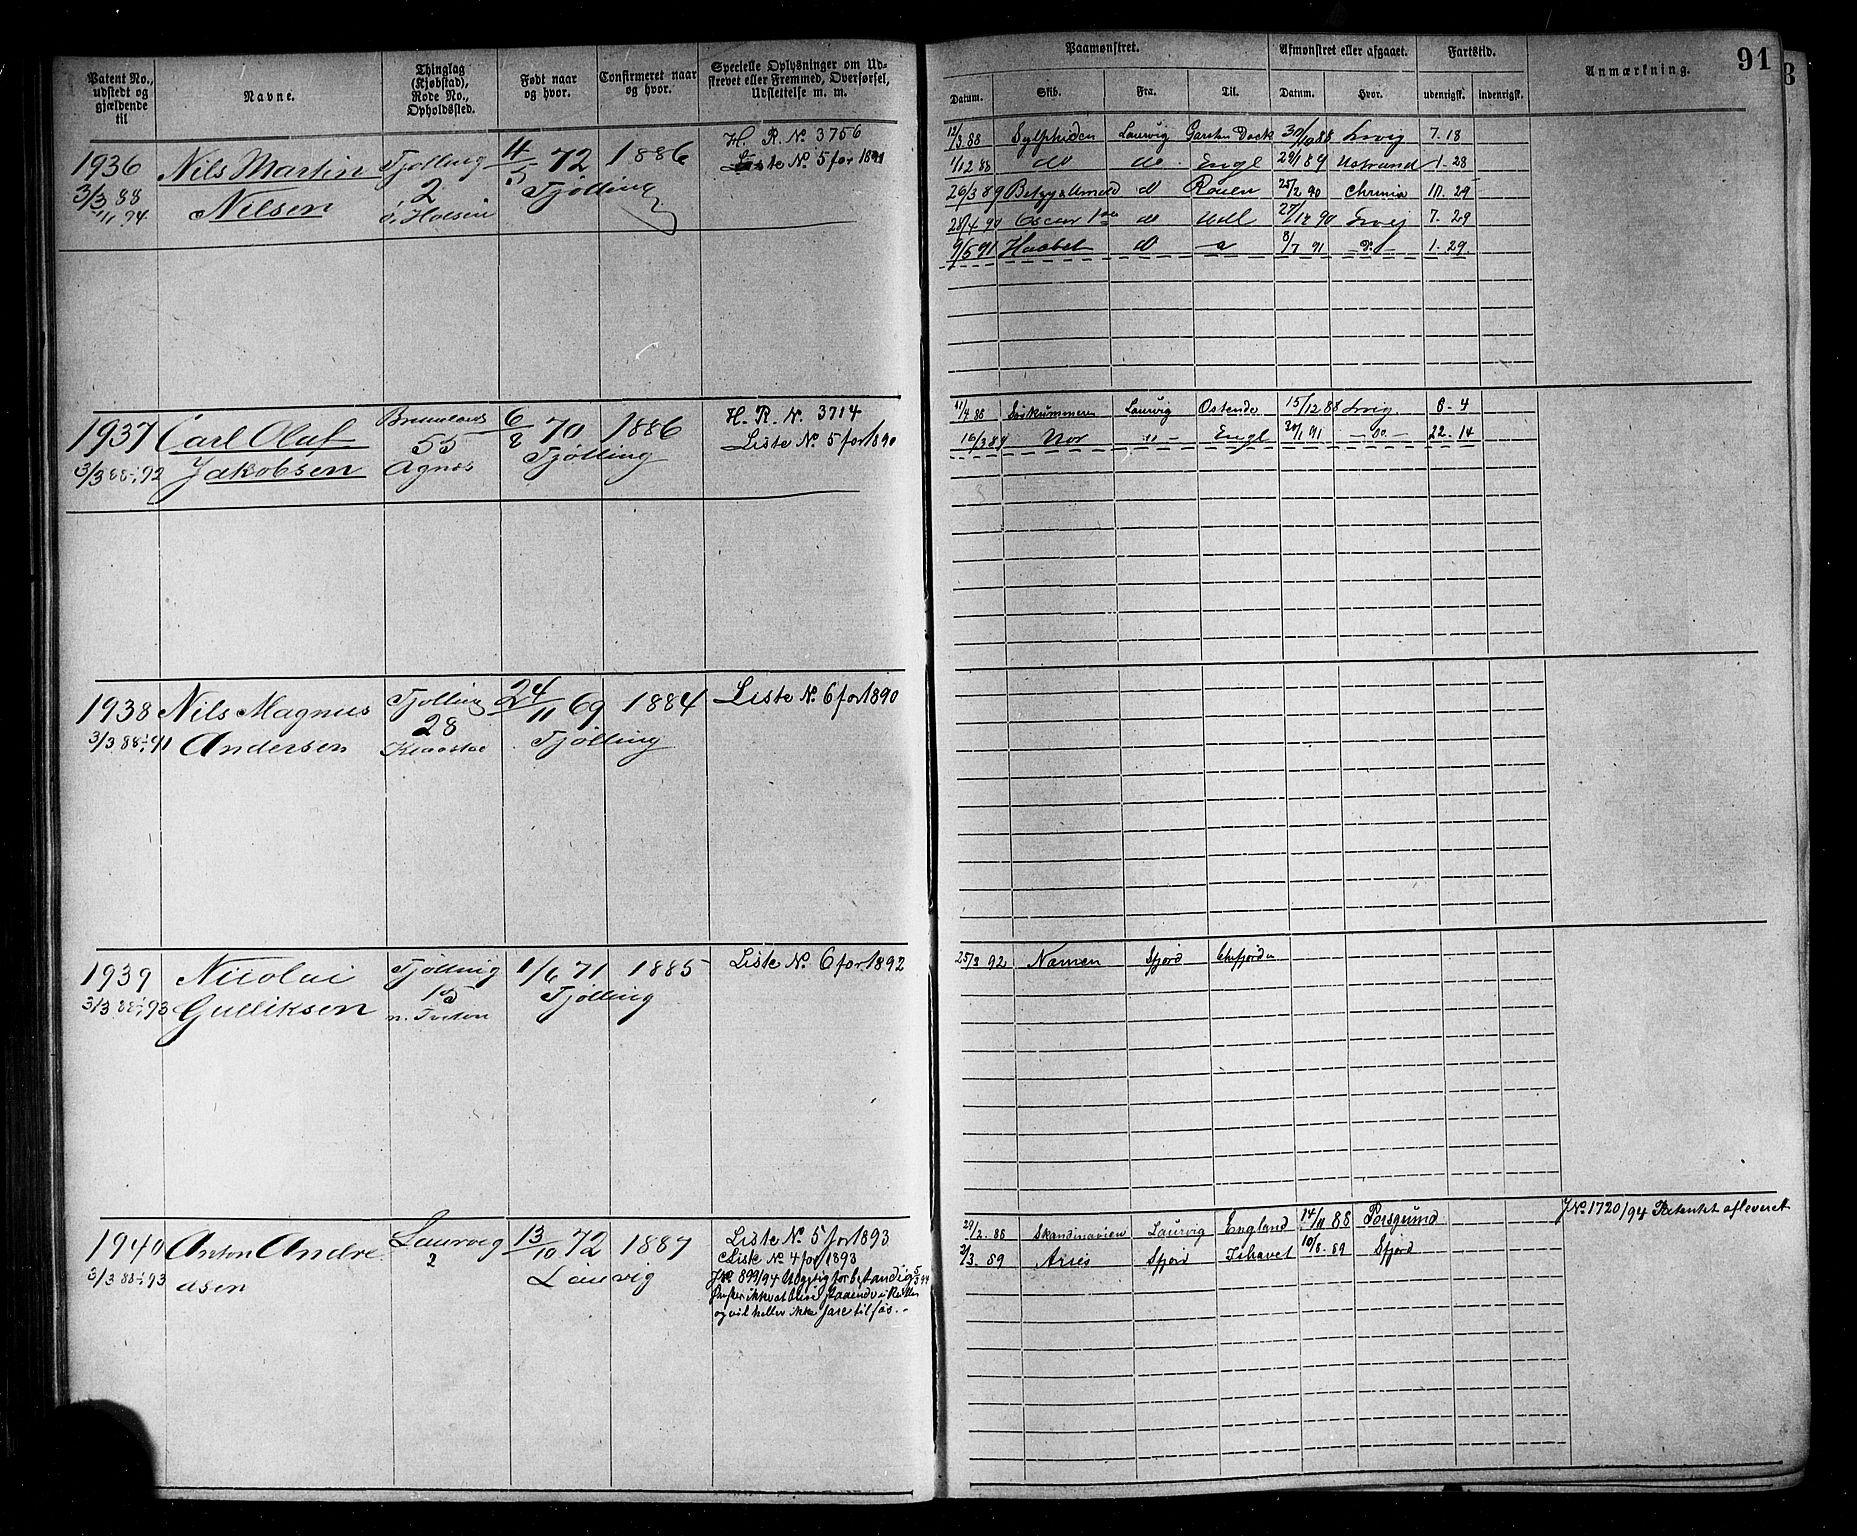 Patent No., udstedt og gjældende til
Navne.
Thinglag (Kjøbstad), Rode No., Opholdssted.
Født naar og hvor.
Confirmeret naar og hvor.
Specielle Oplysninger om Udskrevet eller Fremmed, Overførsel, Udslettelse m. m.
Paamønstret.
Afmønstret eller afgaaet.
Fartstid.
Anmærkning.
91
Datum. Skib. Fra. Til. Datum. Hvor. udenrigsk. indenrigsk.
1936 Nils Martin Tjølling 4/5 72 1886 H. R. No 3756
3/3 88 Nilsen 2 Tjølling Liste No 5 for 1891
1/1 94
12/3 88 Sylphiden Laurvig Garston Dock 30/10 88 Lrvig 7. 18
1/12 88 do do Engl 28/1 89 1. 28
26/3 89 Rouen 25/2 90 Chrnia 10. 25
28/4 90 Oscar 27/12 90 Lrvig 7. 29
9/5 91 Haabet do 8/7 91 do 1. 29
1937 Carl Oluf Brunlanes 6/8 70 1886 H. R. N. 3714
3/3 88-92 Jakobsen 55 Tjølling Liste No 5 for 1890
Agnes
11/4 88 Laurvig Ostende 15/12 88 Lrvig 8. 4
16/3 89 Nor Engl 20/1 91 do 22. 14
1938 Nils Magnus Tjølling 24/11 69 1884 Liste No 6 for 1890
3/3 88-91 Andersen 28 Tjølling
Klaastad
1939 Nicolai Tjølling 1/6 71 1885 Liste No 6 for 1892
3/3 88-93 Gulliksen 15 Tjølling
n. Tveten
25/3 92 Sfjord
1940 Anton Andre Laurvig 13/10 72 1887 Liste No 5 for 1893
3/3 88-93 asen 2 Laurvig Liste No 4 for 1893
JNo 899/94
og vil heller ikke fare tilsøs.
29/2 88 Skandinavien Laurvig England 14/11 88 Porsgrund JNo 1720/94 Patentet afleveret
21/3 89 Aries Sfjord Ishavet 10/8 89 Sfjord